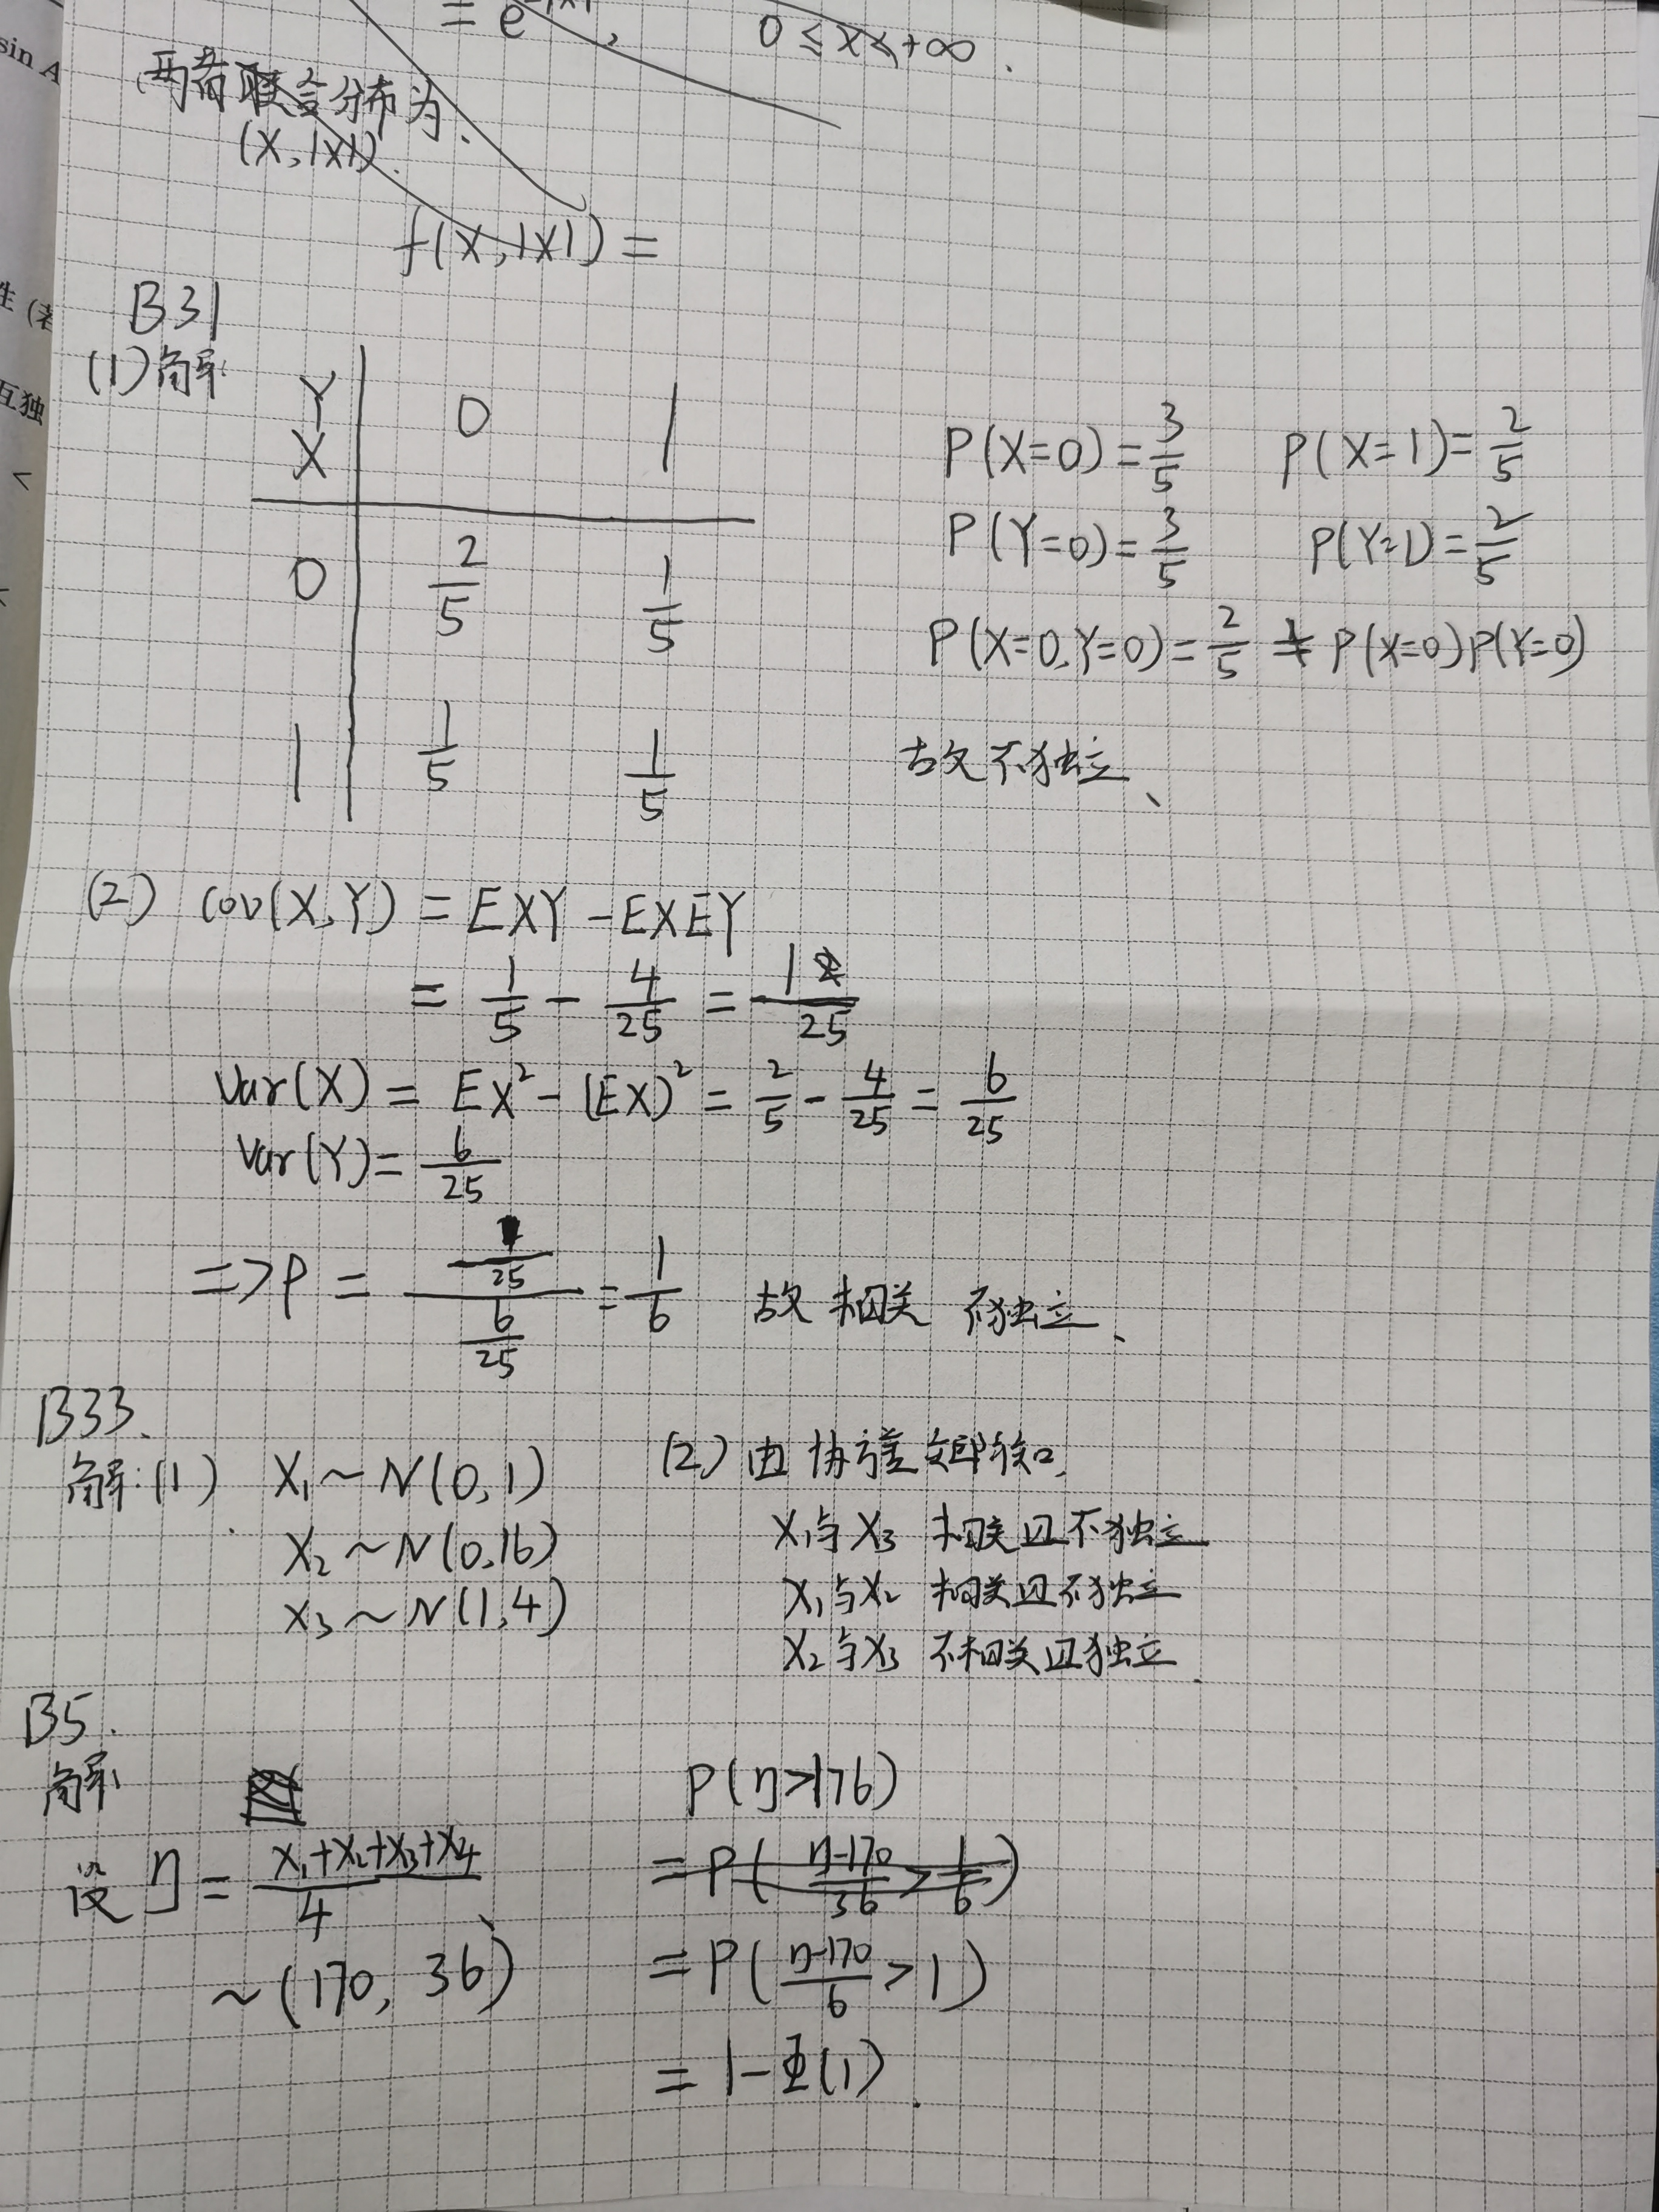 sin A
= e^{-|x|}, 0 ≤ x < +∞.
两者联合分布为、
(X, |X|)
f(X, |X|) =
B31
(1)解:
Y 0 1
X
0 2/5 1/5
1 1/5 1/5
P(X=0)=3/5 P(X=1)=2/5
P(Y=0)=3/5 P(Y=1)=2/5
P(X=0,Y=0)=2/5 ≠ P(X=0)P(Y=0)
故不独立、
(2) cov(X,Y) = EXY - EXEY
= 1/5 - 4/25 = 1/25
Var(X) = EX² - (EX)² = 2/5 - 4/25 = 6/25
Var(Y) = 6/25
=> ρ = (1/25)/(6/25) = 1/6 故相关 不独立、
B33、
解:(1) X₁ ~ N(0,1)
X₂ ~ N(0,16)
X₃ ~ N(1,4)
(2) 由协方差矩阵知,
X₁与X₃ 相关且不独立
X₁与X₂ 相关且不独立
X₂与X₃ 不相关且独立.
B5.
解:
设 η = (X₁+X₂+X₃+X₄)/4
~ (170, 36)
P(η>176)
= P((η-170)/36 > 1/6)
= P((η-170)/6 > 1)
= 1-Φ(1).
生 (若
互独
<